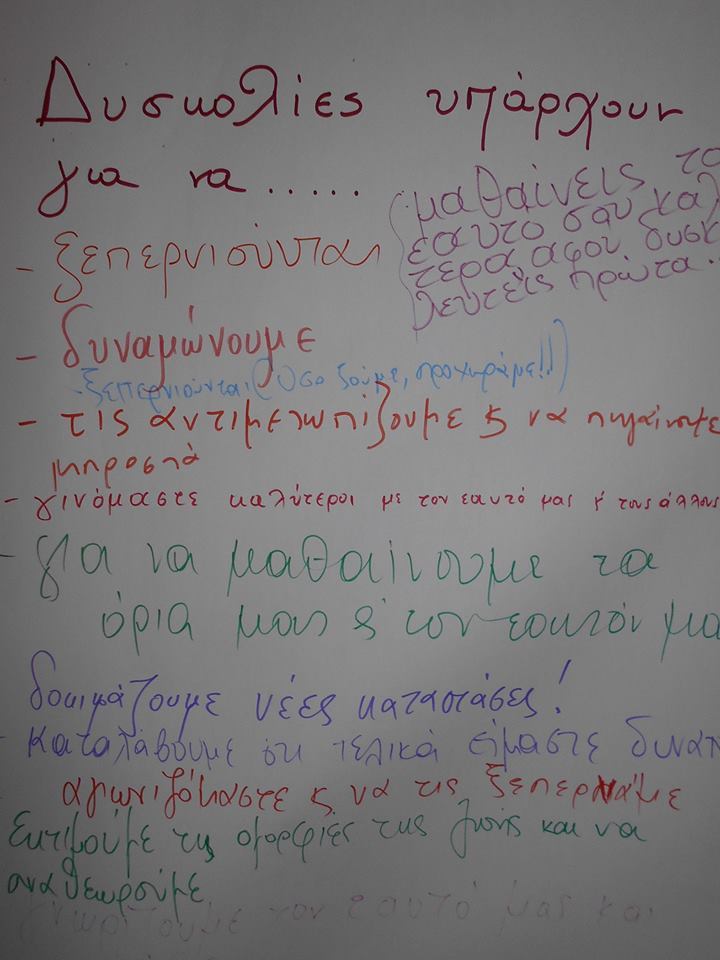 Δυσκολίες υπάρχουν
για να.....
μαθαίνεις το
εαυτό σου καλ
τερα αφού δυσκ
λευτείς πρώτα.
- ξεπερνιούνται
- δυναμώνουμε
- ξεπερνιούνται (Όσο ζούμε, προχωράμε!!)
- τις αντιμετωπίζουμε ς να πηγαίνουμε
μπροστά
- γινόμαστε καλύτεροι με τον εαυτό μας ς τους άλλους
- για να μαθαίνουμε τα
όρια μας ς τον εαυτόν μα
δοκιμάζουμε νέες καταστάσες!
- καταλάβουμε ότι τελικά είμαστε δυνατ
αγωνιζόμαστε ς να τις ξεπερνάμε
Εκτιμούμε τις ομορφιές της ζωής και να
αναθεωρούμε
γνωρίζουμε τον εαυτό μας και